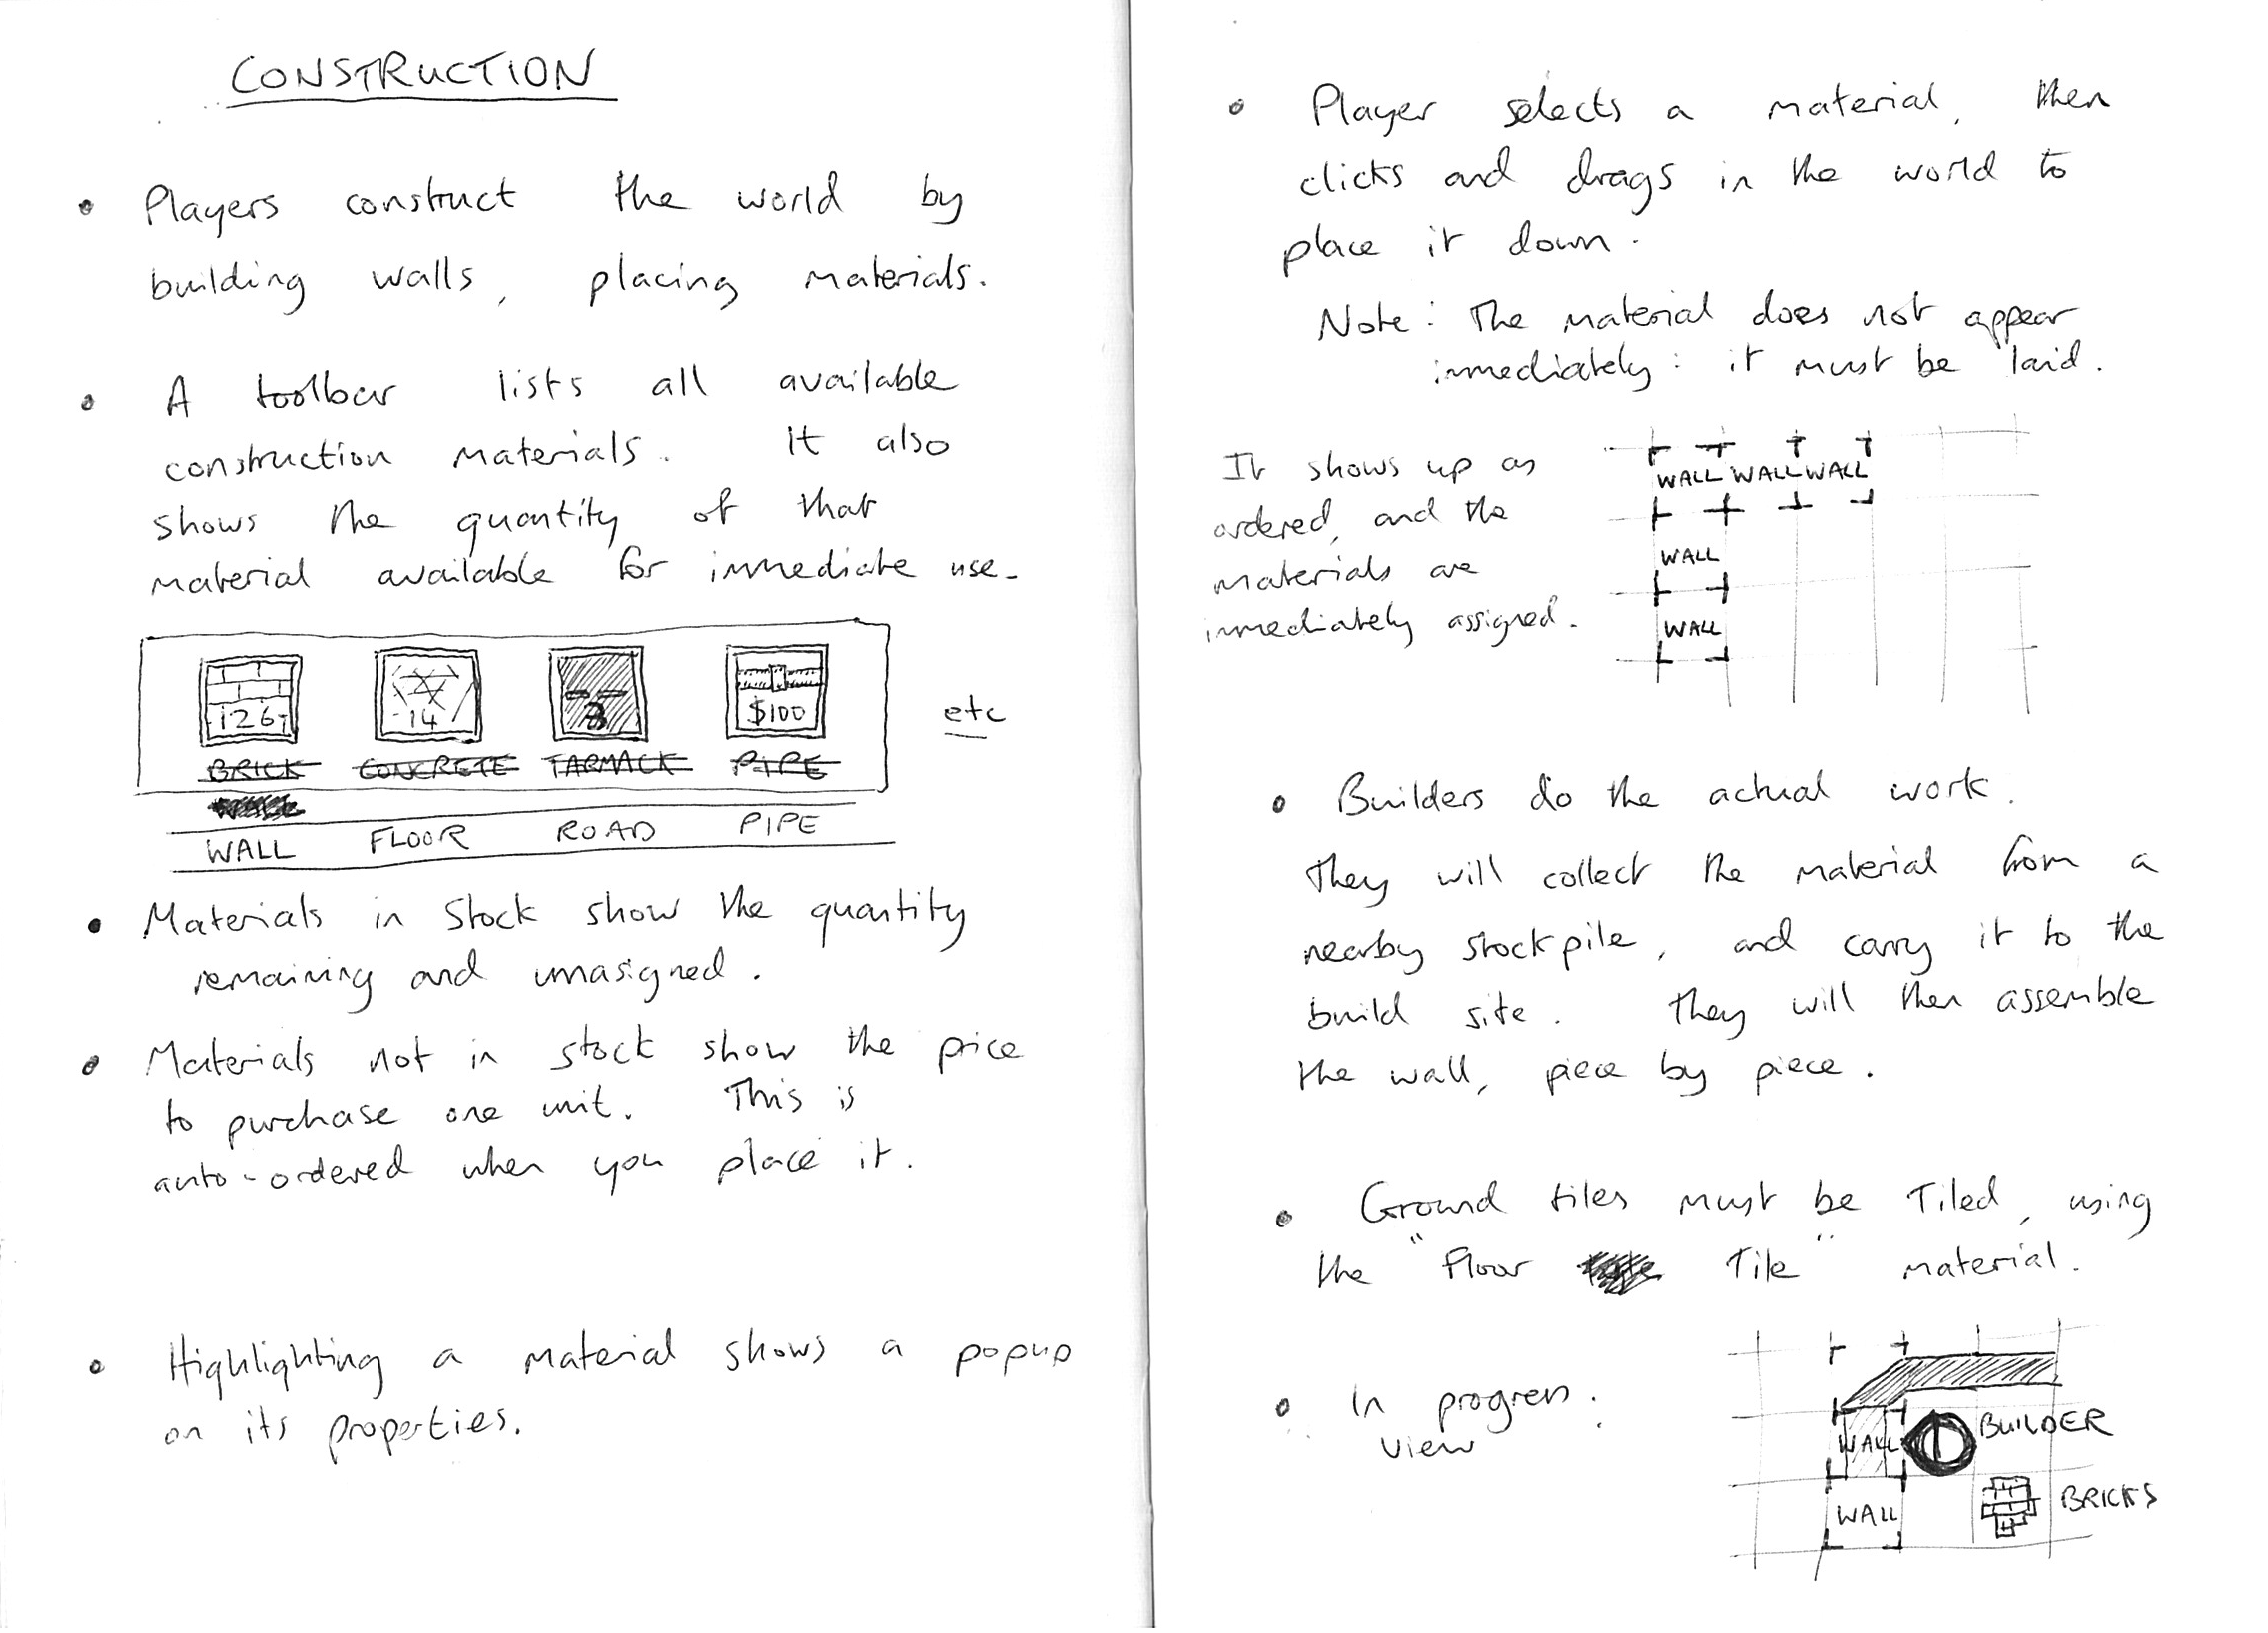 CONSTRUCTION
• Players construct the world by
building walls, placing materials.
• A toolbar lists all available
construction materials. It also
shows the quantity of that
material available for immediate use.
126 14 8 $100
etc
BRICK CONCRETE TARMACK PIPE
WALL FLOOR ROAD PIPE
• Materials in stock show the quantity
remaining and unasigned.
• Materials not in stock show the price
to purchase one unit. This is
auto-ordered when you place it.
• Highlighting a material shows a popup
on its properties.
• Player selects a material, then
clicks and drags in the world to
place it down.
Note: The material does not appear
immediately: it must be laid.
It shows up as
ordered, and the
materials are
immediately assigned.
WALL WALL WALL
WALL
WALL
• Builders do the actual work.
They will collect the material from a
nearby stockpile, and carry it to the
build site. They will then assemble
the wall, piece by piece.
• Ground tiles must be Tiled, using
the "Floor Tile" material.
• In progress.
view
WALL BUILDER
WALL BRICKS